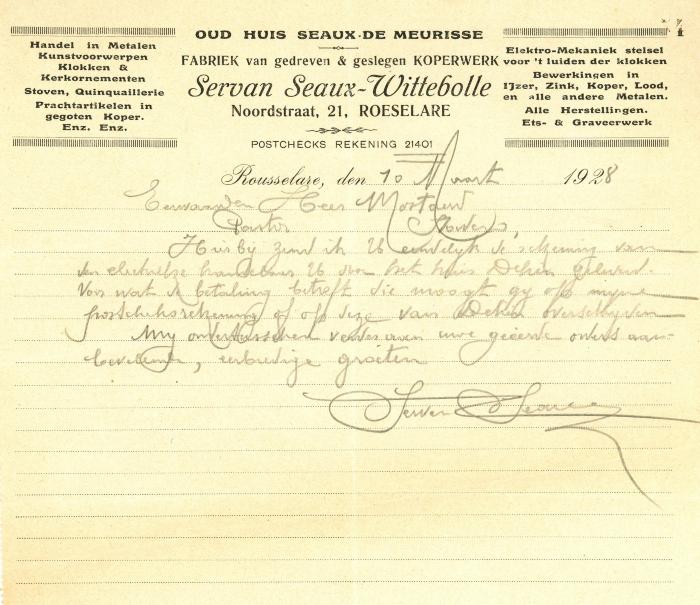 OUD HUIS SEAUX-DE MEURISSE
Handel in Metalen
Kunstvoorwerpen
Klokken &
Kerkornementen
Stoven, Quinquaillerie
Prachtartikelen in
gegoten Koper.
Enz. Enz.
FABRIEK van gedreven & geslegen KOPERWERK
Servan Seaux-Wittebolle
Noordstraat, 21, ROESELARE
POSTCHECKS REKENING 21401
Elektro-Mekaniek stelsel
voor 't luiden der klokken
Bewerkingen in
IJzer, Zink, Koper, Lood,
en alle andere Metalen.
Alle Herstellingen.
Ets- & Graveerwerk
Rousselare, den 10 Maart 1928
Eerwaarden Heer Mortaert
Pastor
Hierbij zend ik U eindelijk de van
den U door het huis Dekin geleverd.
Voor wat de betaling betreft die moogt gy op myne
postchekrekening of op deze van Dekin overschryven
My ondertusschen verder aan uwe geëerde orders aan-
bevelende, eerbiedige groeten
Servan Seaux